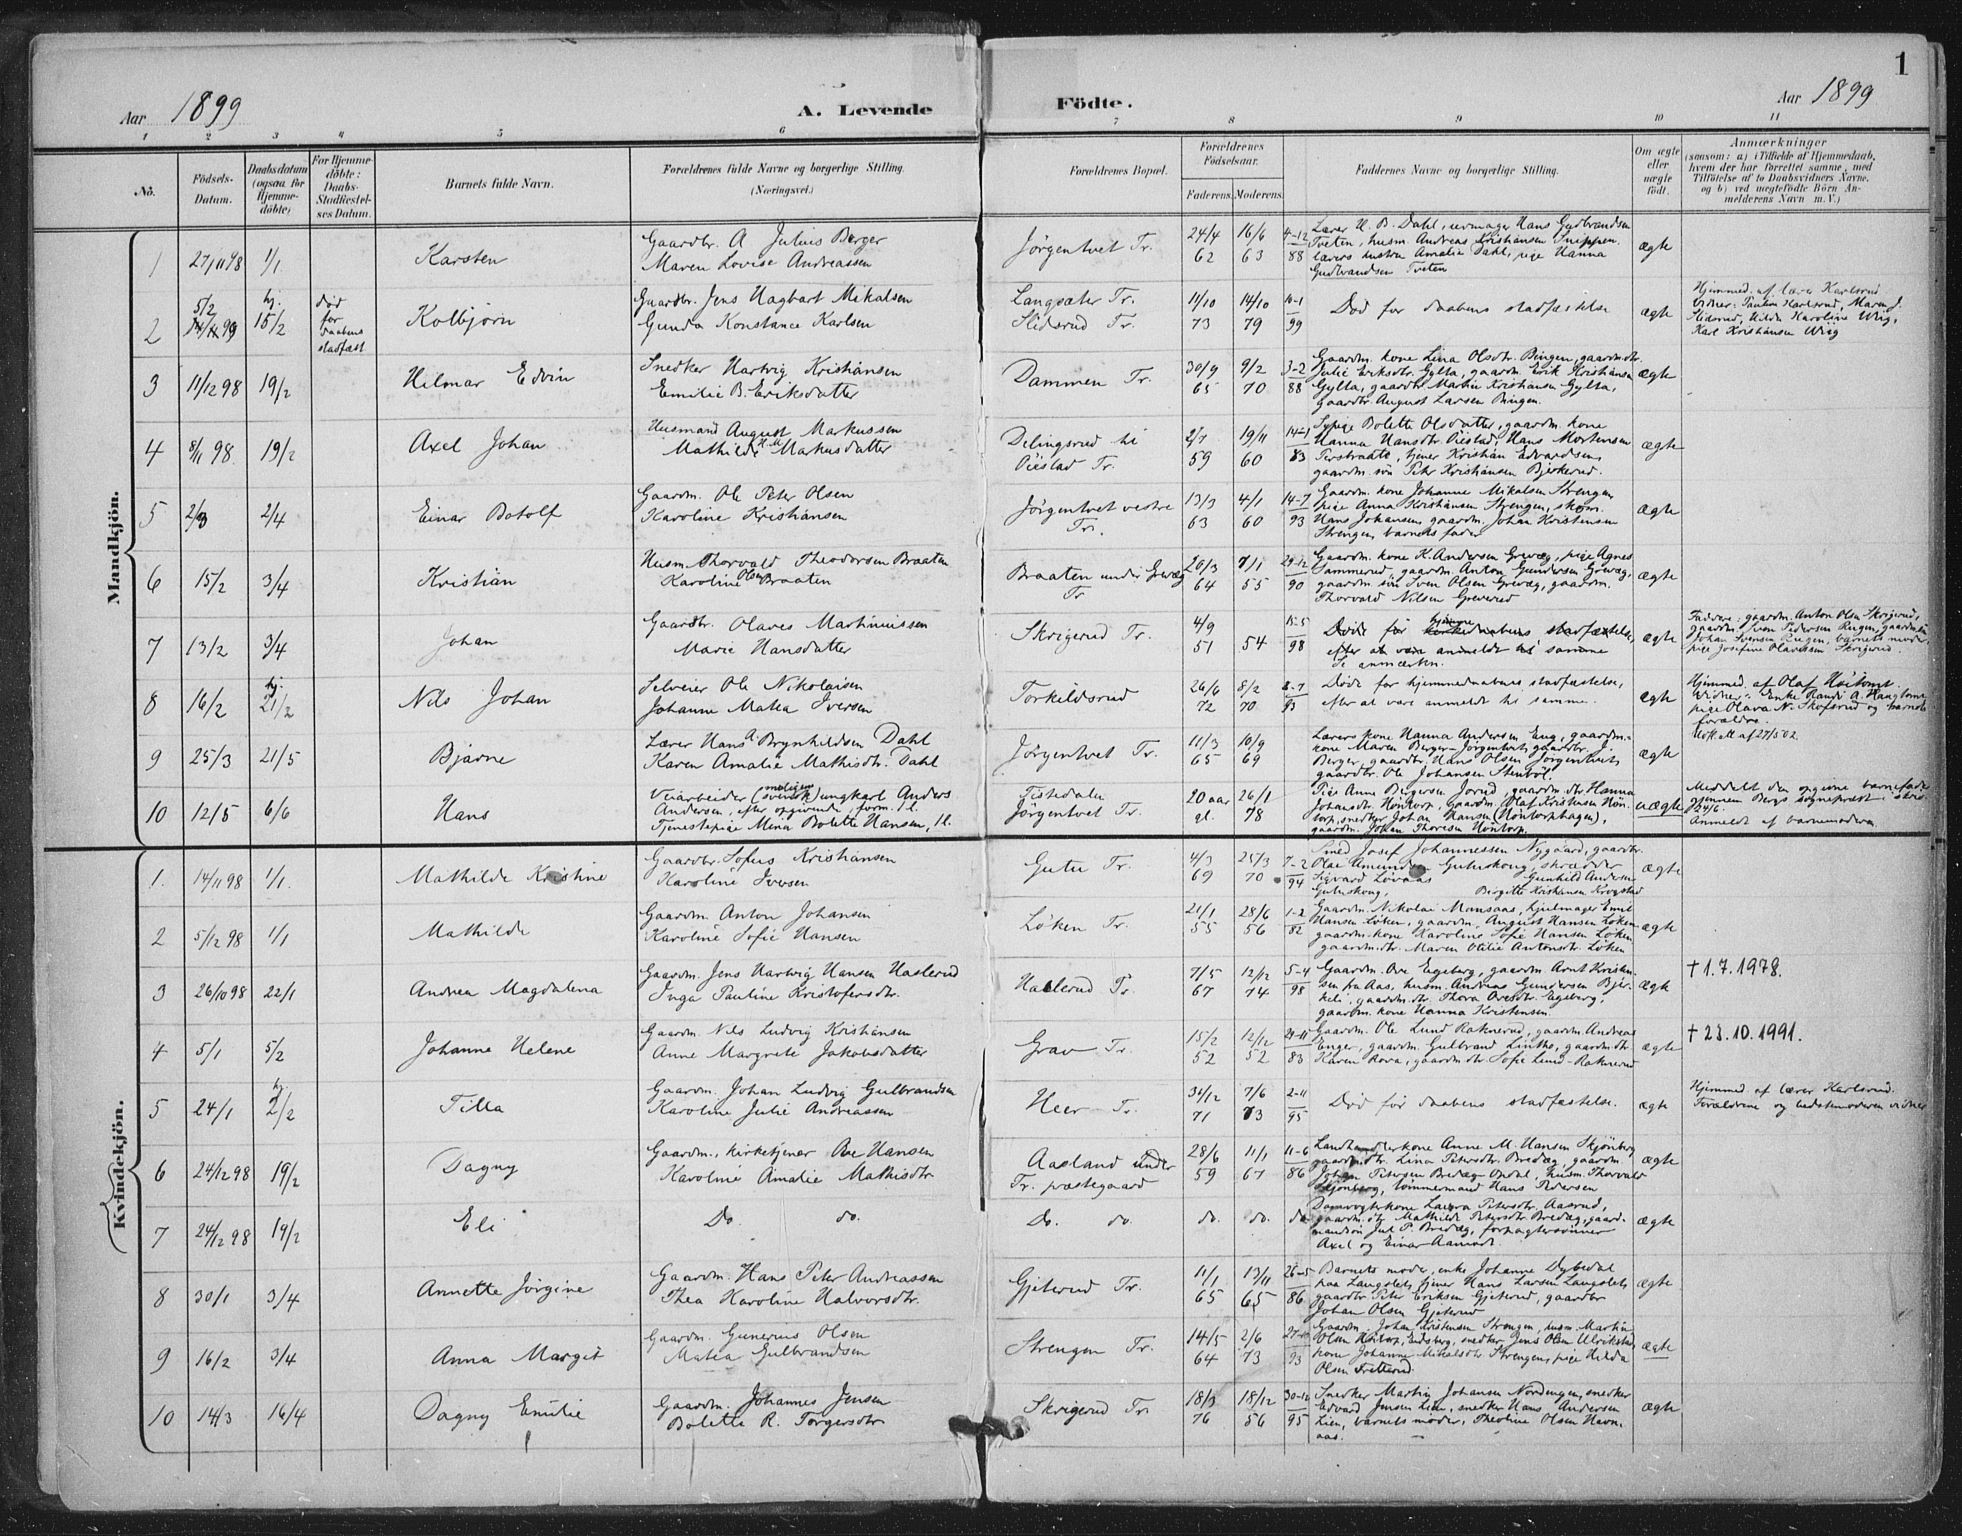 1
Aar 1899
A. Levende
Födte.
Aar 1899
1 2 3 4 5 6 7 8 9 10 11
No.
Födsels-
Datum.
Daabsdatum
(ogsaa for
Hjemme-
döbte)
For Hjemme-
döbte:
Daabs-
Stadfæstel-
ses Datum.
Barnets fulde Navn.
Forældrenes fulde Navne og borgerlige Stilling.
(Næringsvei.)
Forældrenes Bopæl.
Forældrenes
Födselsaar.
Faderens. Moderens.
Faddernes Navne og borgerlige Stilling.
Om ægte
eller
uægte
födt.
Anmærkninger
(saasom: a) i Tilfælde af Hjemmedaab,
hvem der har forrettet samme, med
Tilföielse af to Daabsvidners Navne,
og b) ved uægtefödte Börn An-
melderens Navn m.V.)
Mandkjön.
1 27/11 98 1/1 Karsten
Gaardbr. A Julius Berger
Maren Lovise Andreassen
Jörgentvet Tr.
24/4 62 16/6 63 4-12 88
Lærer H. B. Dahl, uermager Hans Gudbrandsen
Tveten, husm. Andreas Kristiansen Snippen,
lærers hustru Amalie Dahl, pige Hanna
Gudbrandsen Tveten
ægte
2 5/2 99 hj. 15/2 død for daabens stadfæst.
Kolbjørn
Gaardbr. Jens Hagbart Mikalsen
Gunda Konstance Karlsen
Langsæter Tr.
Slidsrud Tr.
11/10 73 14/10 79 10-1 99
Død før daabens stadfæstelse
ægte
Hjemmed. af lærer Karlsrud
Vidner: Paulin Karlsrud, Maren J.
Slidsrud, Hilda Karoline Wiig,
Karl Kristiansen Wiig
3 11/12 98 19/2 Hilmar Edvin
Snedker Hartvig Kristiansen
Emilie B. Eriksdatter
Dammen Tr.
30/9 65 9/2 70 3-2 88
Gaardm. kone Lina Olsdtr. Bingen, gaardm. dtr.
Julie Eriksdtr. Gylta, gaardm. Erik Kristiansen
Gylta, gaardbr. Martin Kristiansen Gylta,
gaardbr. August Larsen Bingen.
ægte
4 8/11 98. 19/2 Axel Johan
Husmand August Markussen
Mathilde H.M. Markusdatter
Delingsrud til
Oiestad Tr.
2/7 59 19/11 60 14-1 83
Sypige Bolette Olsdatter, gaardm. kone
Hanna Hansdtr Oiestad, Hans Mortensen
tjener Kristian Edvardsen,
gaardm. søn Peter Kristiansen Bjerkerud.
ægte
5 2/3 2/4 Einar Botolf
Gaardm. Ole Peter Olsen
Karoline Kristiansen
Jörgentvet vestre
Tr.
13/3 63 4/1 60 14-7 93
Gaardm. kone Johanne Mikalsen Strengen,
pige Anna Kristiansen Strengen, skom.
Hans Johansen, gaardm. Johan Kristensen
Strengen, barnets fader
ægte
6 15/2 3/4 Kristian
Husm. Thorvald Theodorsen Braaten
Karoline Olsen Braaten
Braaten under Grevæg
Tr
20/3 64 7/1 55 29-12 90
Gaardm. kone K. Andersen Grevæg, pige Agnes
Sammerud, gaardm. Anton Gundersen Grevæg,
gaardm. søn Sven Olsen Grevæg, gaardm.
Thorvald Nilsen Greverud
ægte
7 13/2 3/4 Johan
Gaardbr. Olaves Martiniussen
Marie Hansdatter
Skrigerud Tr.
4/9 51 54 15-5 98
Døde før hjemmedaabens stadfæstelse,
efter at være anmeldt til samme
Se anmærkn.
ægte
Faddere: gaardm. Anton Olsen Skrigerud,
gaardm. Sven Pedersen Ringen, gaardm. søn
Johan Svensen Ringen, barnets moder,
pige Josefine Olavessen Skrigerud.
8 16/2 hj. 21/2 Nils Johan
Selveier Ole Nikolaisen
Johanne Matea Iversen
Torkildsrud
26/6 72 8/2 70 8-7 93
Døde før hjemmedaabens stadfæstelse,
efter at være anmeldt til samme.
ægte
Hjemmed. af Olaf Høitomt.
Vidner: Enke Randi A. Haugtomt,
pige Olava N. Skofsrud og barnets
forældre.
9 25/3 21/5 Bjarne
Lærer Hans A. Brynhildsen Dahl
Karen Amalie Mathisdtr. Dahl
Jörgentvet Tr.
11/3 65 10/9 69
Lærers kone Hanna Andersen Eng, gaardm.-
kone Maren Berger-Jörgentvet, gaardbr. J.
Berger, gaardbr. Hans Olsen Jörgentvet,
gaardbr. Ole Johansen Stenböl.
ægte
Utst. at af 27/5 02.
10 12/5 6/6 Hans
Veiarbeider (svensk) ungkarl Anders
Andersen, efter opgivende, form. 1l.
Tjenestepige Mina Bolette Hansen, 1l.
Fistedalen
Jörgentvet Tr.
20 aar gl. 26/1 78
Pige Anne Bergersen Jorud, gaardm. dtr Hanna
Johansdtr. Höntorp, gaardm. Olaf Kristensen Hön-
torp, snedker Johan Hansen (Höntorphagen),
gaardm. Johan Thoresen Höntorp.
uægte
Meddelt den opgivne barnefader
gjennem Bergs sogneprest i skr.
24/6.
Anmeldt af barnemoderen
Kvindekjön.
1. 14/11 98 1/1. Mathilde Kristine
Gaardbr. Sofus Kristiansen
Karoline Iversen
Gutu Tr.
4/3 69 25/3 70 7-2 94
Smed Josef Johannessen Nygaard, gaardbr.
Olai Amundsen Gutuskoug, skrædder
Sigvard Lövaas Gunhild Andersen
Gutuskoug, Birgitte Kristiansen Krogstad
ægte
2 5/12 98 1/1 Mathilde
Gaardm. Anton Johansen
Karoline Sofie Hansen
Löken Tr.
21/1 55 28/6 56 1-2 82
Gaardm. Nikolai Monsaas, hjulmager Emil
Hansen Löken, gaardm. August Hansen Löken
gaardm.-kone Karoline Sofie Hansen Löken
gaardm. dtr. Maren Otilie Antonsdtr. Löken
ægte
3 26/10 98 22/1 Andrea Magdalena
Gaardm. Jens Hartvig Hansen Haslerud
Inga Pauline Kristofersdtr.
Haslerud Tr.
7/5 67 12/12 74 5-4 98
Gaardm. Ole Egeberg, gaardm. Arnt Kristen-
sen fra Aas, husm. Andreas Gundersen Bjer-
keli, gaardm. dtr. Thora Oresdtr. Egeberg,
gaardm. kone Hanna Kristensen.
ægte
† 1.7.1978.
4 5/1 5/2 Johanne Helene
Gaardm. Nils Ludvig Kristiansen
Anne Margrete Jakobsdatter
Grav Tr.
15/2 52 12/12 52 29-11 83
Gaardm. Ole Lund Raknerud, gaardm. Andreas
Enger, gaardm. Gulbrand Lintho, gaardm. dtr.
Karen Rova, gaardm dtr Sofie Lund-Raknerud
ægte
† 23.10.1991.
5 24/1 hj. 2/2 Tilla
Gaardm. Johan Ludvig Gulbrandsen
Karoline Julie Andreassen
Heer Tr.
31/12 71 7/6 73 2-11 95
Død før daabens stadfæstelse.
ægte
Hjemmed. af lærer Karlsrud.
Forældrene og bedstemoderen vidner
6 24/12 98 19/2 Dagny
Gaardm., kirketjener Ove Hansen
Karoline Amalie Mathisdtr
Aasland under
Tr. præstegaard
28/6 59 11/1 67 11-6 86
Landhandlerkone Anne M. Hansen Skjönberg
gaardm. dtr. Lina Petersdtr. Bredæg, gaardm.
Johan Petersen Bredæg Opdal, husm. Thorvald
Skjönberg, tömmermand Hans Pedersen
ægte
7 24/12 98 19/2 Eli
Do. do.
Do. do.
do. do. do
Damvogterkone Laura Petersdtr. Aasrud,
gaardm. dtr Mathilde Petersdtr Bredæg, gaard-
mandsön Jul P. Bredæg, forpagtersønner
Axel og Einar Aamodt.
ægte
8 30/1 3/4 Annette Jörgine
Gaardm. Hans Peter Andreassen
Thea Karoline Halvorsdtr.
Gjeterud Tr.
11/1 65 13/11 65 26-5 86
Barnets moder, enke Johanne Dybedal
paa Langslet, tjener Hans Larsen Langslet,
gaardbr. Peter Eriksen Gjeterud, gaardbr
Johan Olsen Gjeterud
ægte
9 16/2 3/4 Anna Margit
Gaardm. Gunerius Olsen
Matea Gulbrandsen
Strengen Tr.
14/5 64 2/6 73 93
Gaardm. Johan Kristensen Strengen, husm. Martin
Olsen Höitorp, Eidsberg, snedker Jens Olsen Ulrikstad,
kone Johanne Mikalsdtr Strengen, pige Hilda
Olsen Fretterud.
ægte
10 14/3 16/4 Dagny Emilie
Gaardm. Johannes Jensen
Bolette R. Torgersdtr
Skrigerud Tr.
18/3 76 18/12 56 30-12 95
Snedker Martin Johansen Nordengen, snedker
Edvard Jensen Lien, snedker Hans Andersen
Lien, barnets moder, Theoline Olsen Havn-
aas.
ægte